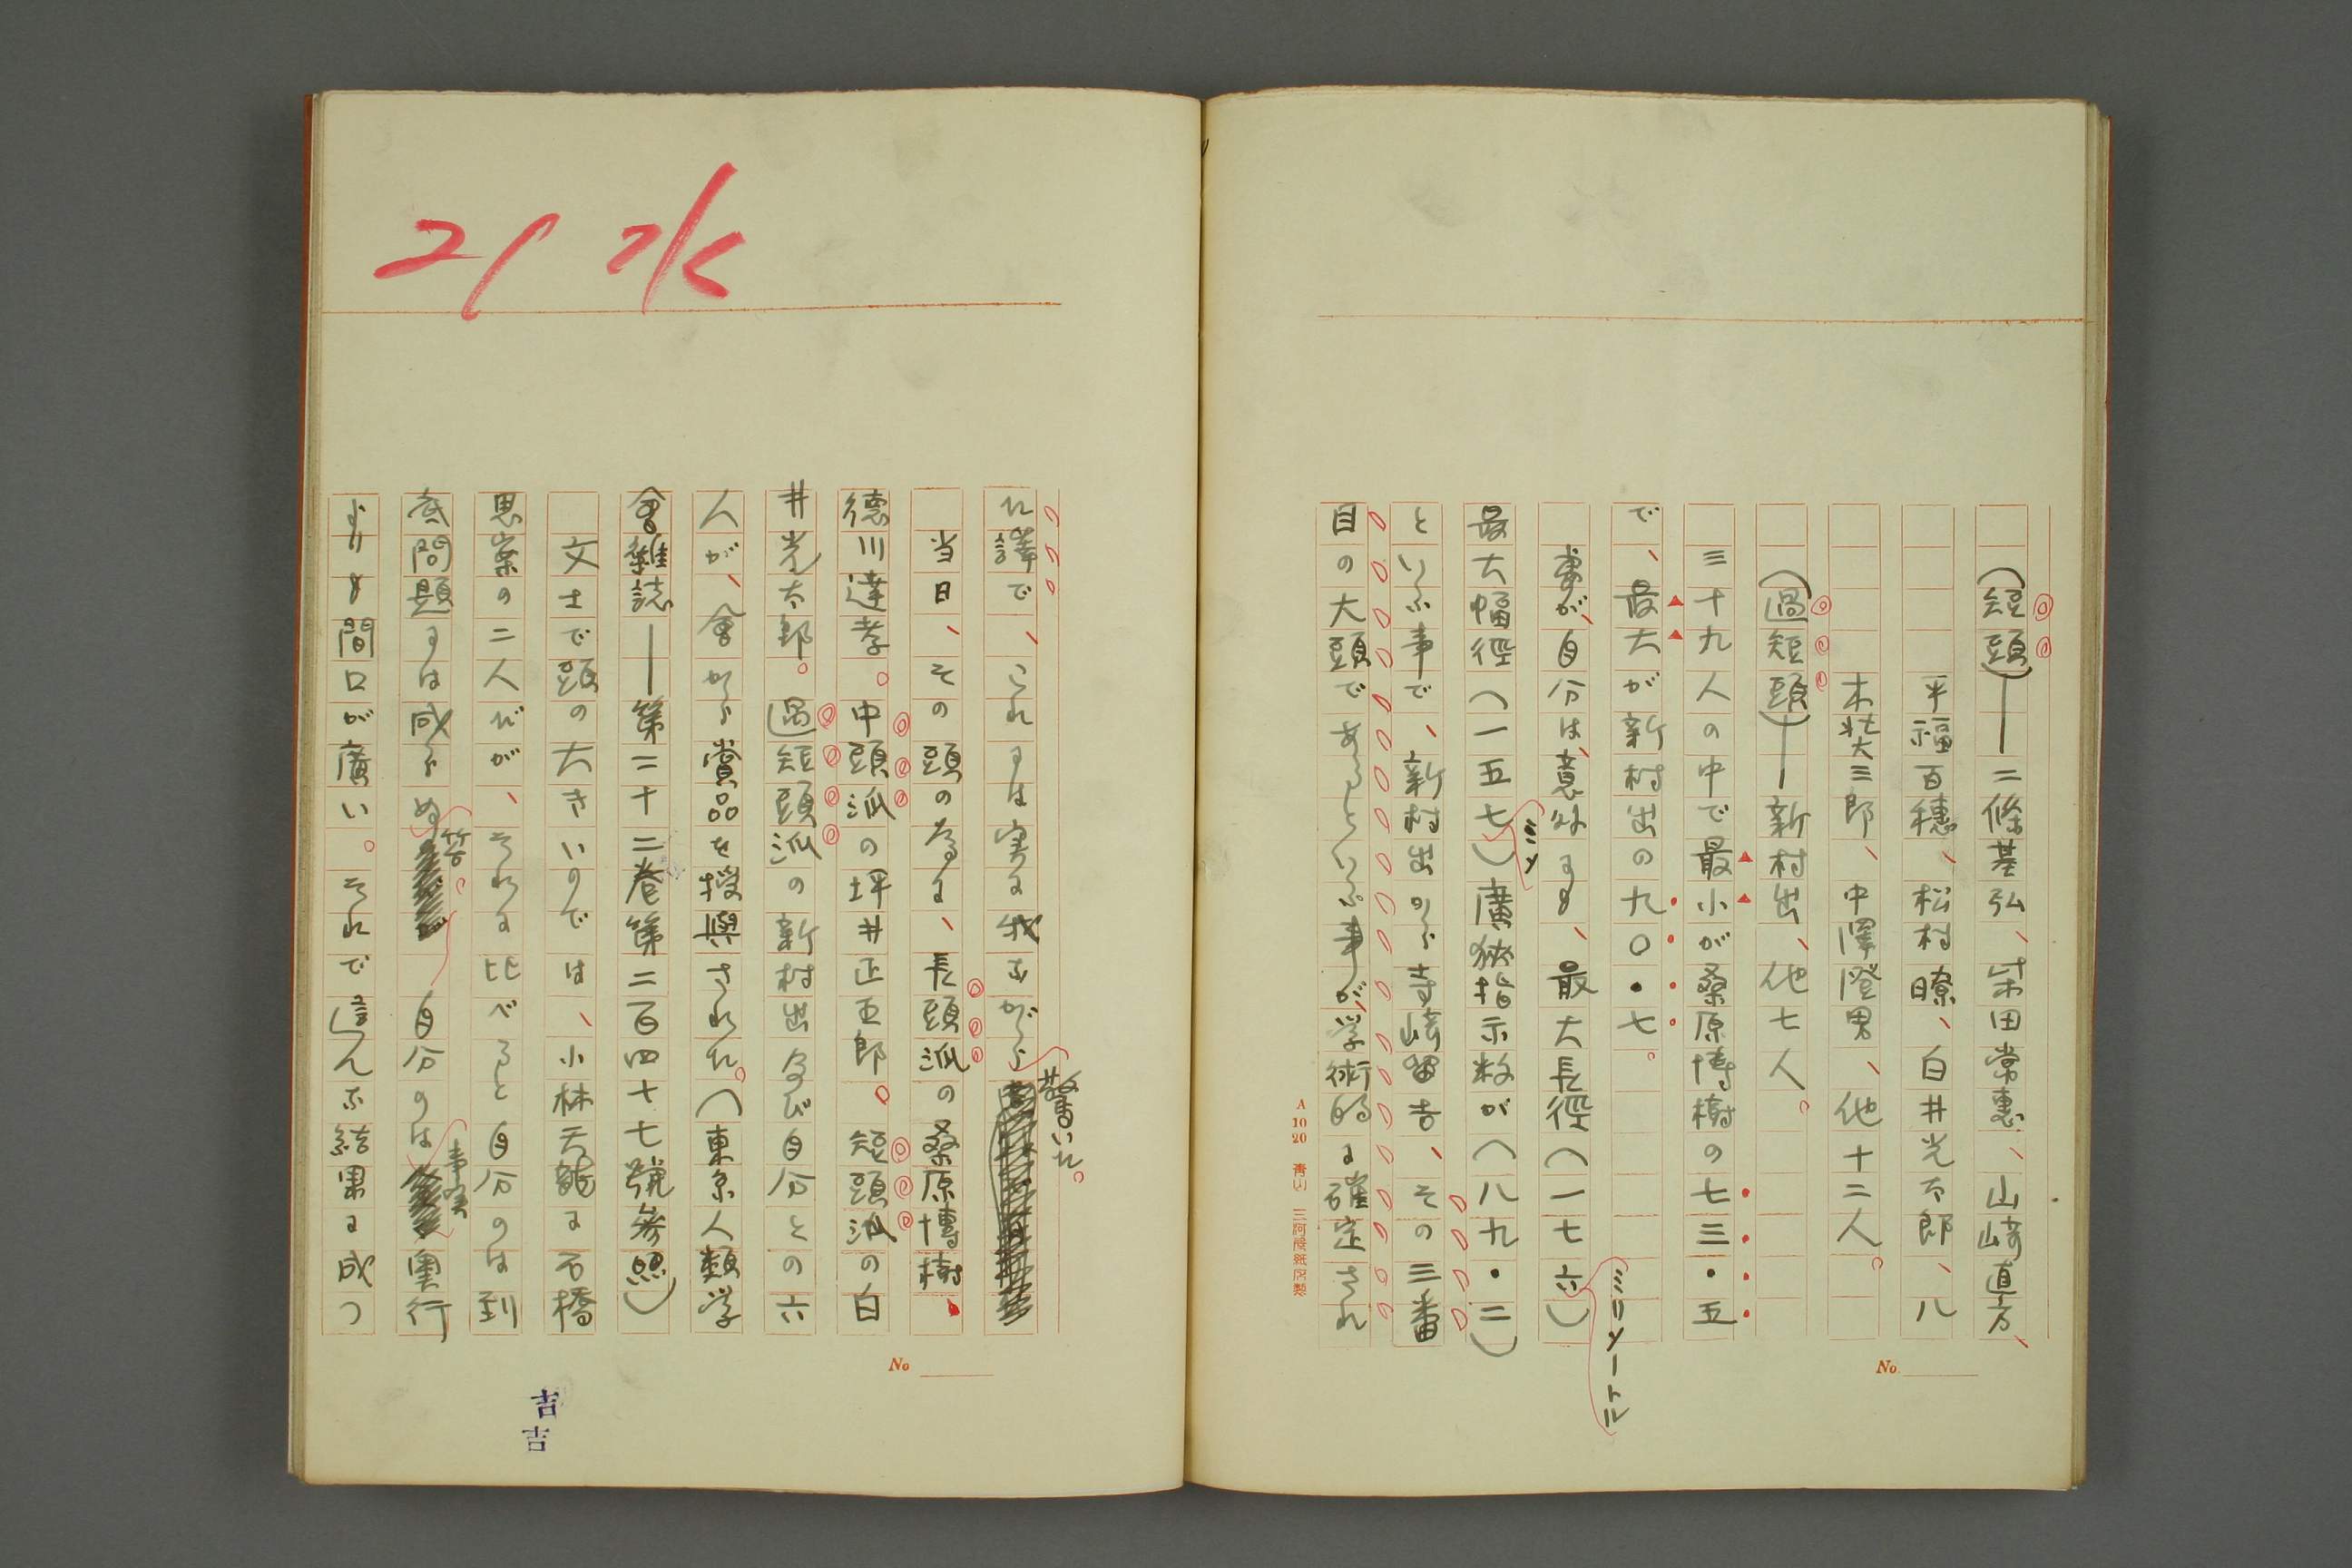 (短頭)――二條基弘、柴田常惠、山崎直方、
平福百穗、松村瞭、白井光太郎、八
木奘三郎、中澤澄男、他十二人。
(過短頭)――新村出、他七人。
三十九人の中で最小が桑原博樹の七三・五
で、最大が新村出の九〇・七。
處が、自分は、意外にも、最大長徑(一七六)
ミリメートル
最大幅徑(一五七)廣狹指示数が(八九・二)
ミリメ
といふ事で、新村出から寺崎留吉、その三番
目の大頭であるといふ事が、学術的に確定され
A 1020 青山 三河屋紙店製
No.
21 水
た譯で、これには実に我ながら
驚いた。
当日、その頭の為に、長頭派の桑原博樹、
德川達孝。中頭派の坪井正五郎。短頭派の白
井光太郎。過短頭派の新村出及び自分との六
人が、會から賞品を授與された。(東京人類学
會雜誌――第二十二卷第二百四十七號參照)
文士で頭の大きいのでは、小林天龍に石橋
思案の二人だが、それに比べると自分のは到
底問題には成らぬ
筈。
自分のは
事実
奥行
よりも間口が廣い。それで這んな結果に成つ
No
吉
吉